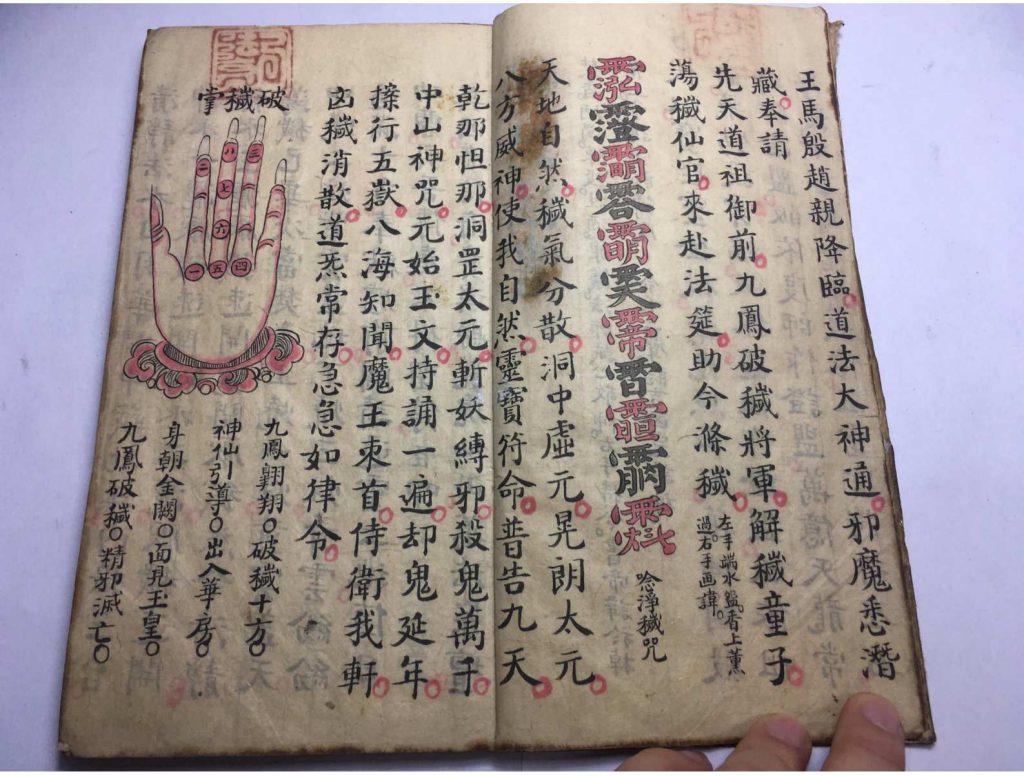 王馬殷趙親降臨道法大神通邪魔悉潛
藏奉請
先天道祖御前九鳳破穢將軍解穢童子
蕩穢仙官來赴法筵助今滌穢
左手端水盤香上薰
過右手画諱
唸淨穢咒
天地自然穢氣分散洞中虛元晃朗太元
八方威神使我自然靈寶符命普告九天
乾那怛那洞罡太元斬妖縛邪殺鬼萬千
中山神咒元始玉文持誦一遍却鬼延年
搽行五嶽八海知聞魔王朿首侍衛我軒
凶穢消散道炁常存急急如律令
破穢掌
三
八
二
七
六
一
五
四
九鳳翱翔○破穢十方○
神仙引導○出入華房○
身朝金闕○面見玉皇○
九鳳破穢○精邪滅亡○